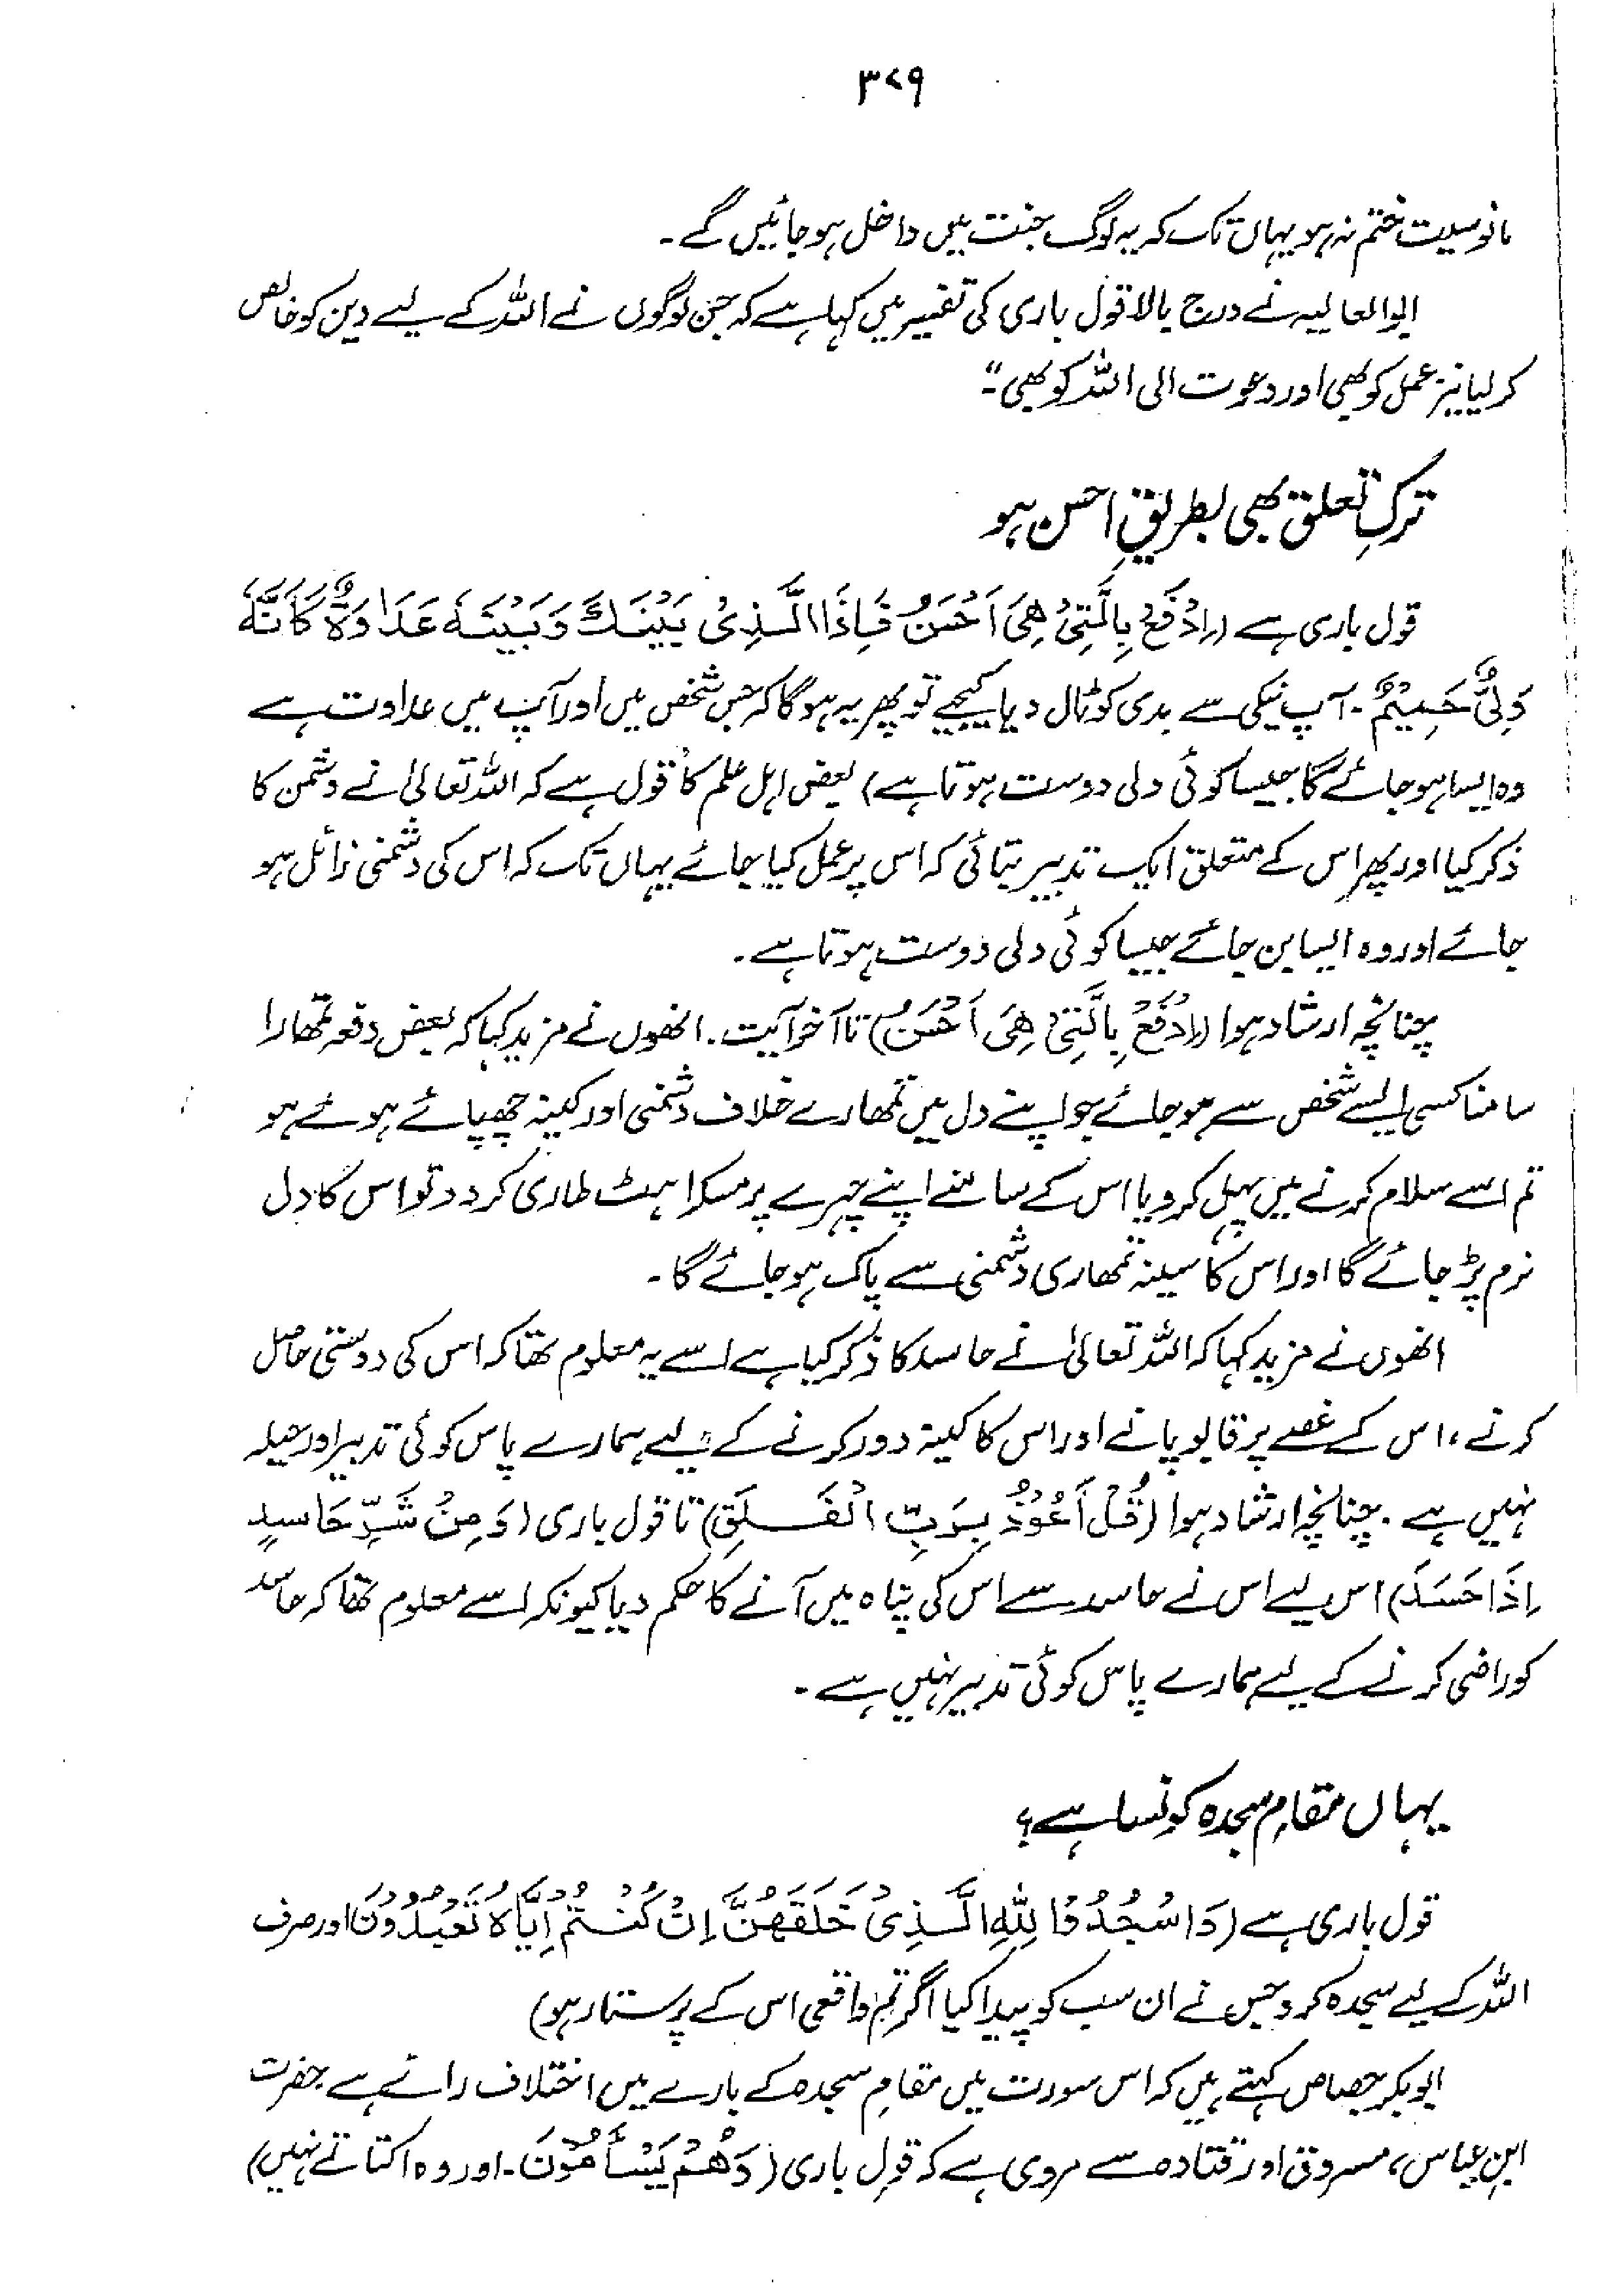 ۳۷۹
مانوسیت ختم نہ ہو یہاں تک کہ یہ لوگ جنت میں داخل ہوجائیں گے۔
ابوالعالیہ نے درج بالا قول باری کی تفسیر میں کہا ہے کہ جن لوگوں نے اللہ کے لیے دین کو خالص
کر لیا نیز عمل کو بھی اور دعوت الی اللہ کو بھی"۔
ترکِ تعلق بھی بطریقِ احسن ہو
قول باری ہے (اِدْفَعْ بِالَّتِیْ هِیَ اَحْسَنُ فَاِذَا الَّذِیْ بَیْنَكَ وَبَیْنَهٗ عَدَاوَةٌ كَاَنَّهٗ
وَلِیٌّ حَمِیْمٌ۔ آپ نیکی سے بدی کو ٹال دیا کیجیے تو پھر یہ ہوگا کہ جس شخص میں اور آپ میں عداوت ہے
وہ ایسا ہوجائے گا جیسا کوئی دلی دوست ہوتا ہے) بعض اہل علم کا قول ہے کہ اللہ تعالیٰ نے دشمن کا
ذکر کیا اور پھر اس کے متعلق ایک تدبیر بتائی کہ اس پر عمل کیا جائے یہاں تک کہ اس کی دشمنی زائل ہو
جائے اور وہ ایسا بن جائے جیسا کوئی دلی دوست ہوتا ہے۔
چنانچہ ارشاد ہوا (اِدْفَعْ بِالَّتِیْ هِیَ اَحْسَنُ) تا آخر آیت۔ انھوں نے مزید کہا کہ بعض دفعہ تمھارا
سامنا کسی ایسے شخص سے ہوجائے جو اپنے دل میں تمھارے خلاف دشمنی اور کینہ چھپائے ہوئے ہو
تم اسے سلام کرنے میں پہل کرو یا اس کے سامنے اپنے چہرے پر مسکراہٹ طاری کردو تو اس کا دل
نرم پڑ جائے گا اور اس کا سینہ تمھاری دشمنی سے پاک ہوجائے گا۔
انھوں نے مزید کہا کہ اللہ تعالیٰ نے حاسد کا ذکر کیا ہے اسے یہ معلوم تھا کہ اس کی دوستی حاصل
کرنے، اس کے غصے پر قابو پانے اور اس کا کینہ دور کرنے کے لیے ہمارے پاس کوئی تدبیر اور حیلہ
نہیں ہے۔ چنانچہ ارشاد ہوا (قُلْ اَعُوْذُ بِرَبِّ الْفَلَقِ) تا قول باری (وَمِنْ شَرِّ حَاسِدٍ
اِذَا حَسَدَ) اس لیے اس نے حاسد سے اس کی پناہ میں آنے کا حکم دیا کیونکہ اسے معلوم تھا کہ حاسد
کو راضی کرنے کے لیے ہمارے پاس کوئی تدبیر نہیں ہے۔
یہاں مقامِ سجدہ کونسا ہے؟
قول باری ہے (وَاسْجُدُوْا لِلّٰهِ الَّذِیْ خَلَقَهُنَّ اِنْ كُنْتُمْ اِیَّاهُ تَعْبُدُوْنَ اور صرف
اللہ کے لیے سجدہ کرو جس نے ان سب کو پیدا کیا اگر تم واقعی اس کے پرستار ہو)
ابوبکر جصاص کہتے ہیں کہ اس سورت میں مقامِ سجدہ کے بارے میں اختلاف رائے ہے حضرت
ابنِ عباس، مسروق اور قتادہ سے مروی ہے کہ قولِ باری (وَهُمْ یَسْأَمُوْنَ۔ اور وہ اکتاتے نہیں)